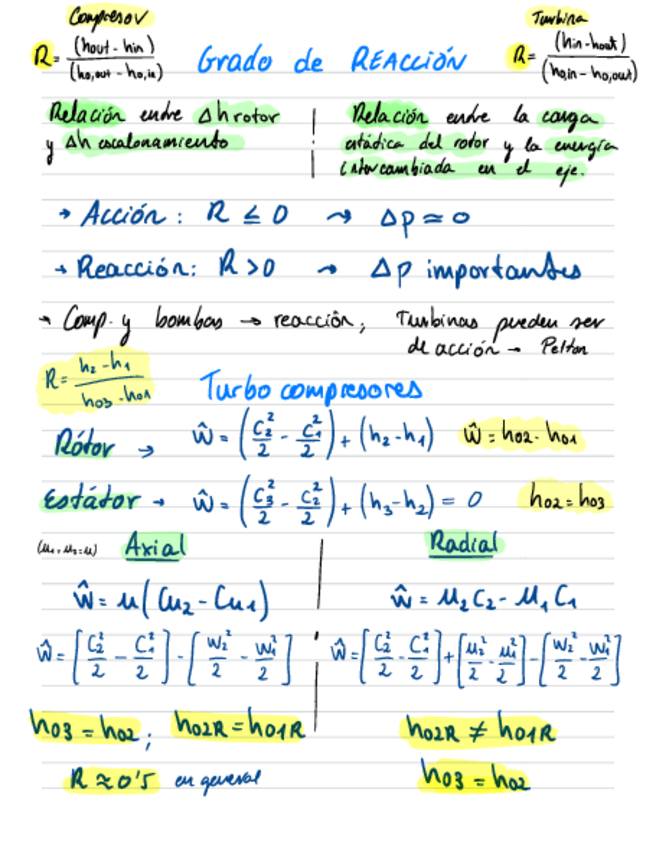 Compresor
R = (hout - hin) / (ho,out - ho,in)
Grado de REACCIÓN
Turbina
R = (hin - hout) / (ho,in - ho,out)
Relación entre Δh rotor
y Δh escalonamiento
Relación entre la carga
estática del rotor y la energía
intercambiada en el eje.
→ Acción: R ≤ 0 ⇝ Δp ≃ 0
→ Reacción: R > 0 → Δp importantes
→ Comp. y bombas → reacción; Turbinas pueden ser
de acción → Pelton
R = (h2 - h1) / (h03 - h01)
Turbo compresores
Rótor → ŵ = (C2²/2 - C1²/2) + (h2 - h1) ŵ = h02 - h01
Estátor → ŵ = (C3²/2 - C2²/2) + (h3 - h2) = 0 h02 = h03
(u1, u2 = u) Axial
ŵ = u(Cu2 - Cu1)
ŵ = [C2²/2 - C1²/2] - [W2²/2 - W1²/2]
h03 = h02; h02R = h01R
R ≈ 0'5 en general
Radial
ŵ = u2 C2 - u1 C1
ŵ = [C2²/2 - C1²/2] + [u2²/2 - u1²/2] - [W2²/2 - W1²/2]
h02R ≠ h01R
h03 = h02